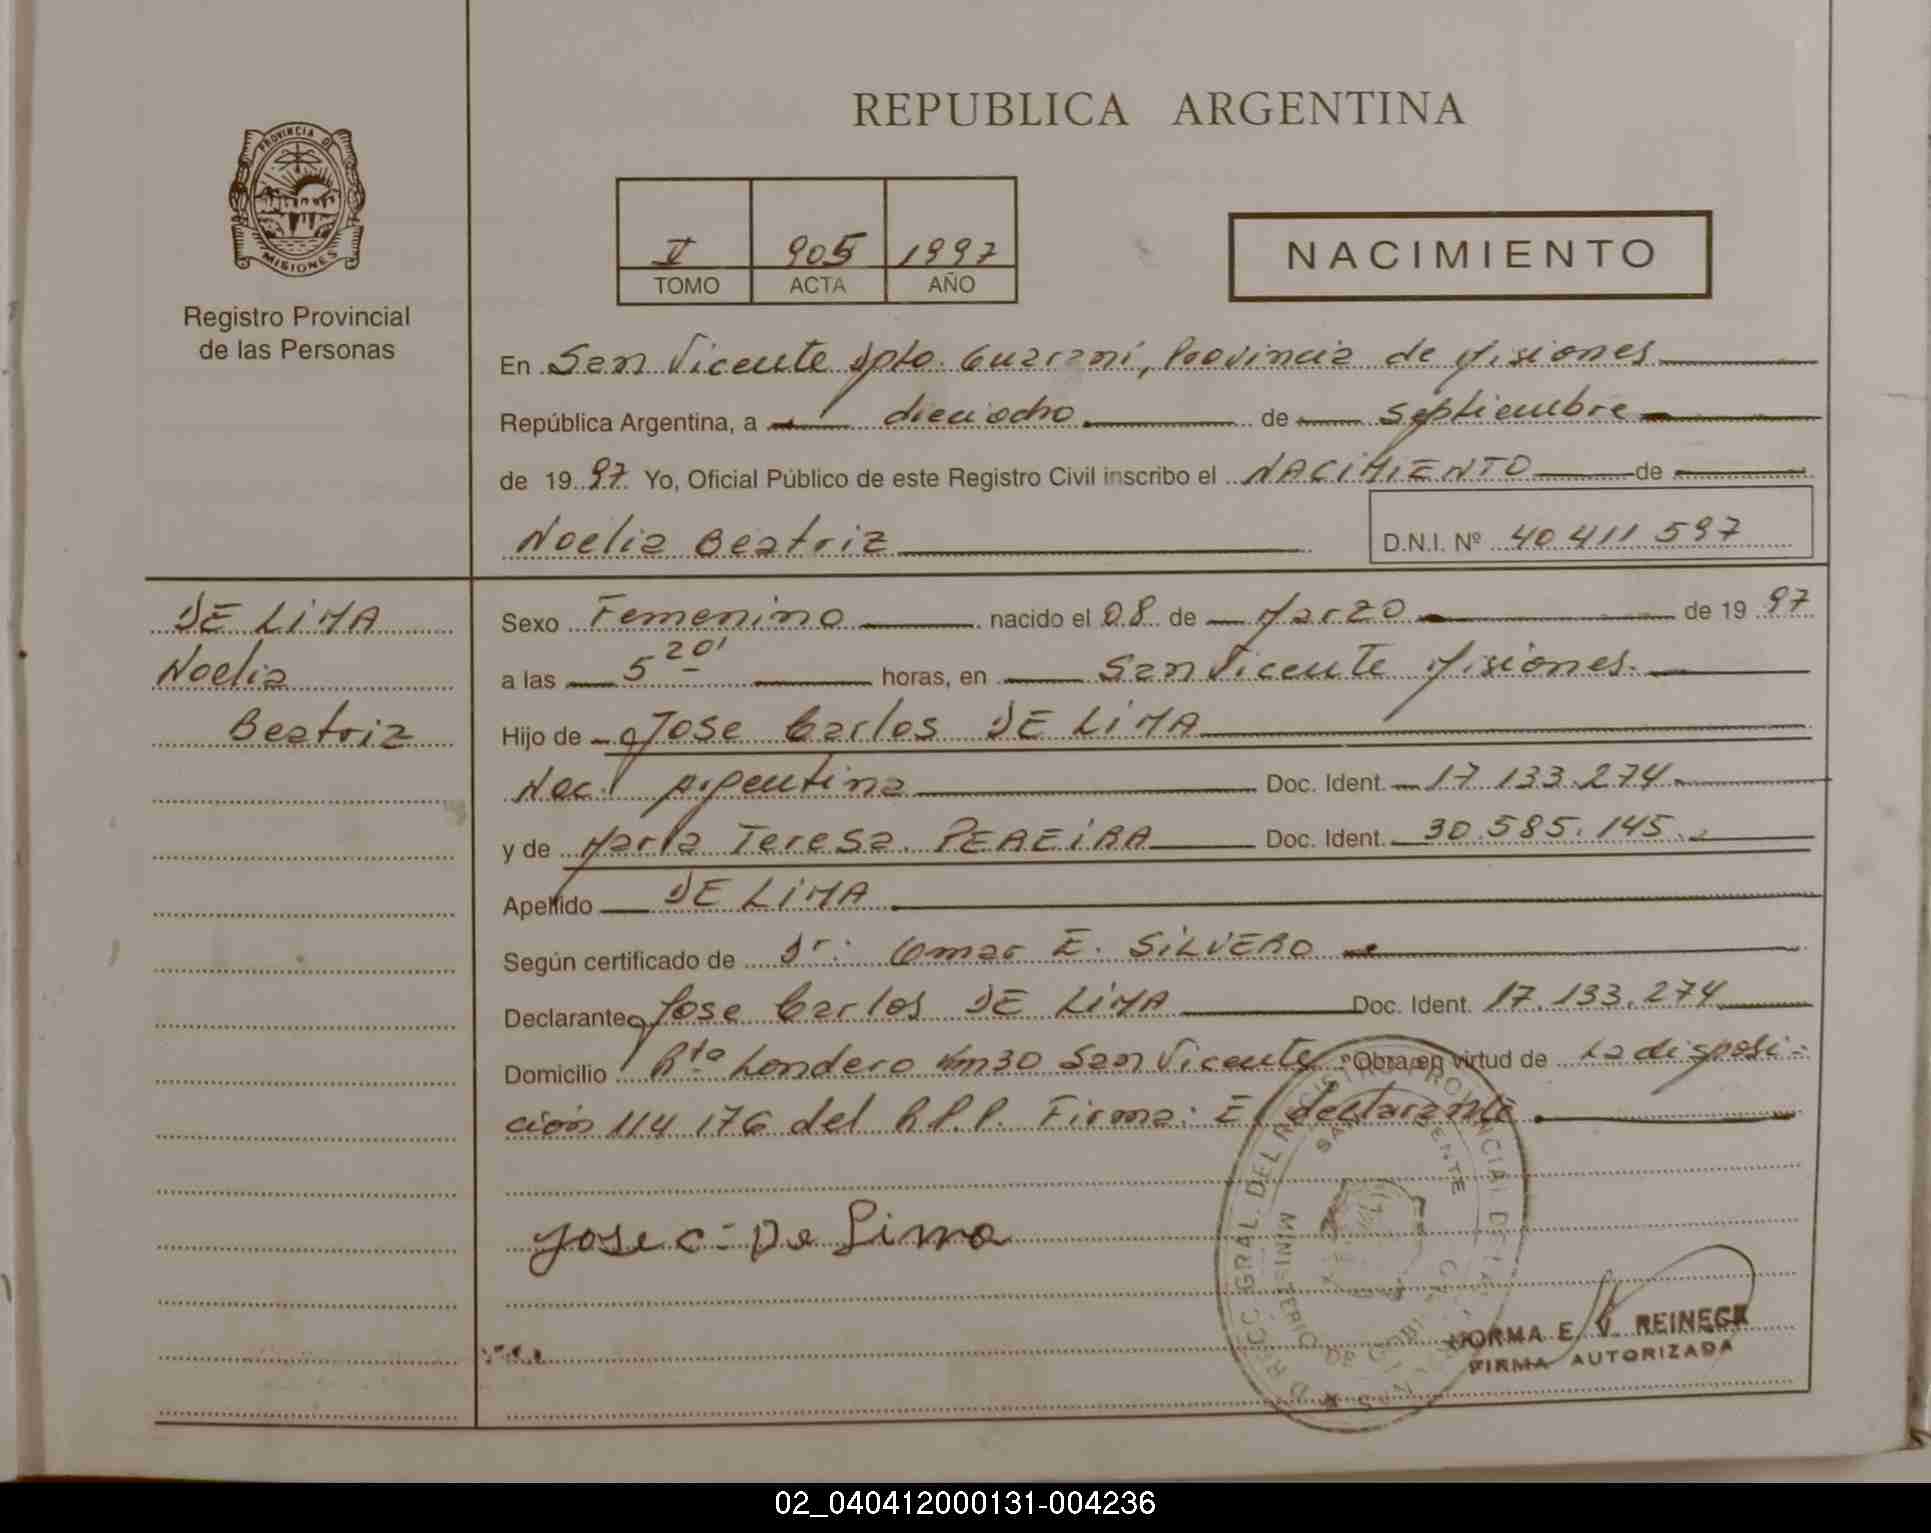 REPUBLICA ARGENTINA
PROVINCIA DE
MISIONES
Registro Provincial
de las Personas
V 905 1997
TOMO ACTA AÑO
NACIMIENTO
En San Vicente Dpto. Guaraní, Provincia de Misiones
República Argentina, a dieciocho de septiembre
de 1997 Yo, Oficial Público de este Registro Civil inscribo el NACIMIENTO de
Noelia Beatriz D.N.I. Nº 40 411 597
DE LIMA
Noelia
Beatriz
Sexo Femenino nacido el 08 de Marzo de 1997
a las 5 20' horas, en San Vicente Misiones.
Hijo de Jose Carlos DE LIMA
Nac. Argentina Doc. Ident. 17.133.274
y de María Teresa PEREIRA Doc. Ident. 30.585.145.
Apellido DE LIMA
Según certificado de Dr. Omar E. SILVERO
Declarante Jose Carlos DE LIMA Doc. Ident. 17.133.274
Domicilio Rta Londero Km30 San Vicente Obra en virtud de La disposi-
ción 114 176 del R.P.P. Firma: El declarante
Jose C- De Lima
DIRECC GRAL. DEL REGISTRO PROVINCIAL DE LAS
SAN VICENTE
MINISTERIO DE
NORMA E. V. REINECK
FIRMA AUTORIZADA
02_040412000131-004236